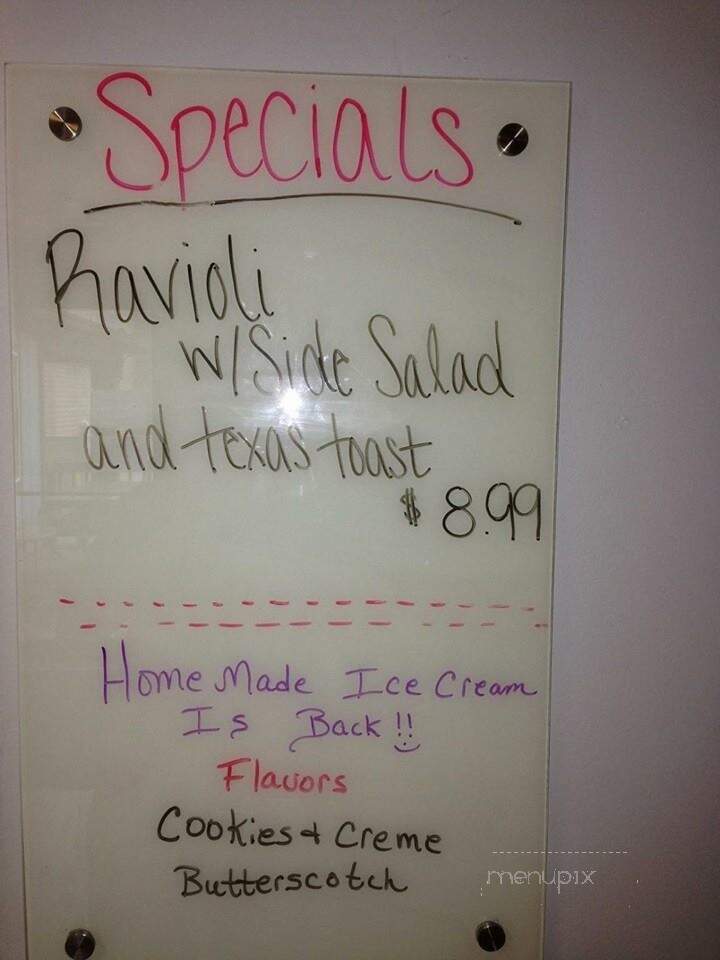 Specials
Ravioli
w/Side Salad
and texas toast
$ 8.99
Home Made Ice Cream
Is Back!!
Flavors
Cookies & Creme
Butterscotch
menupix